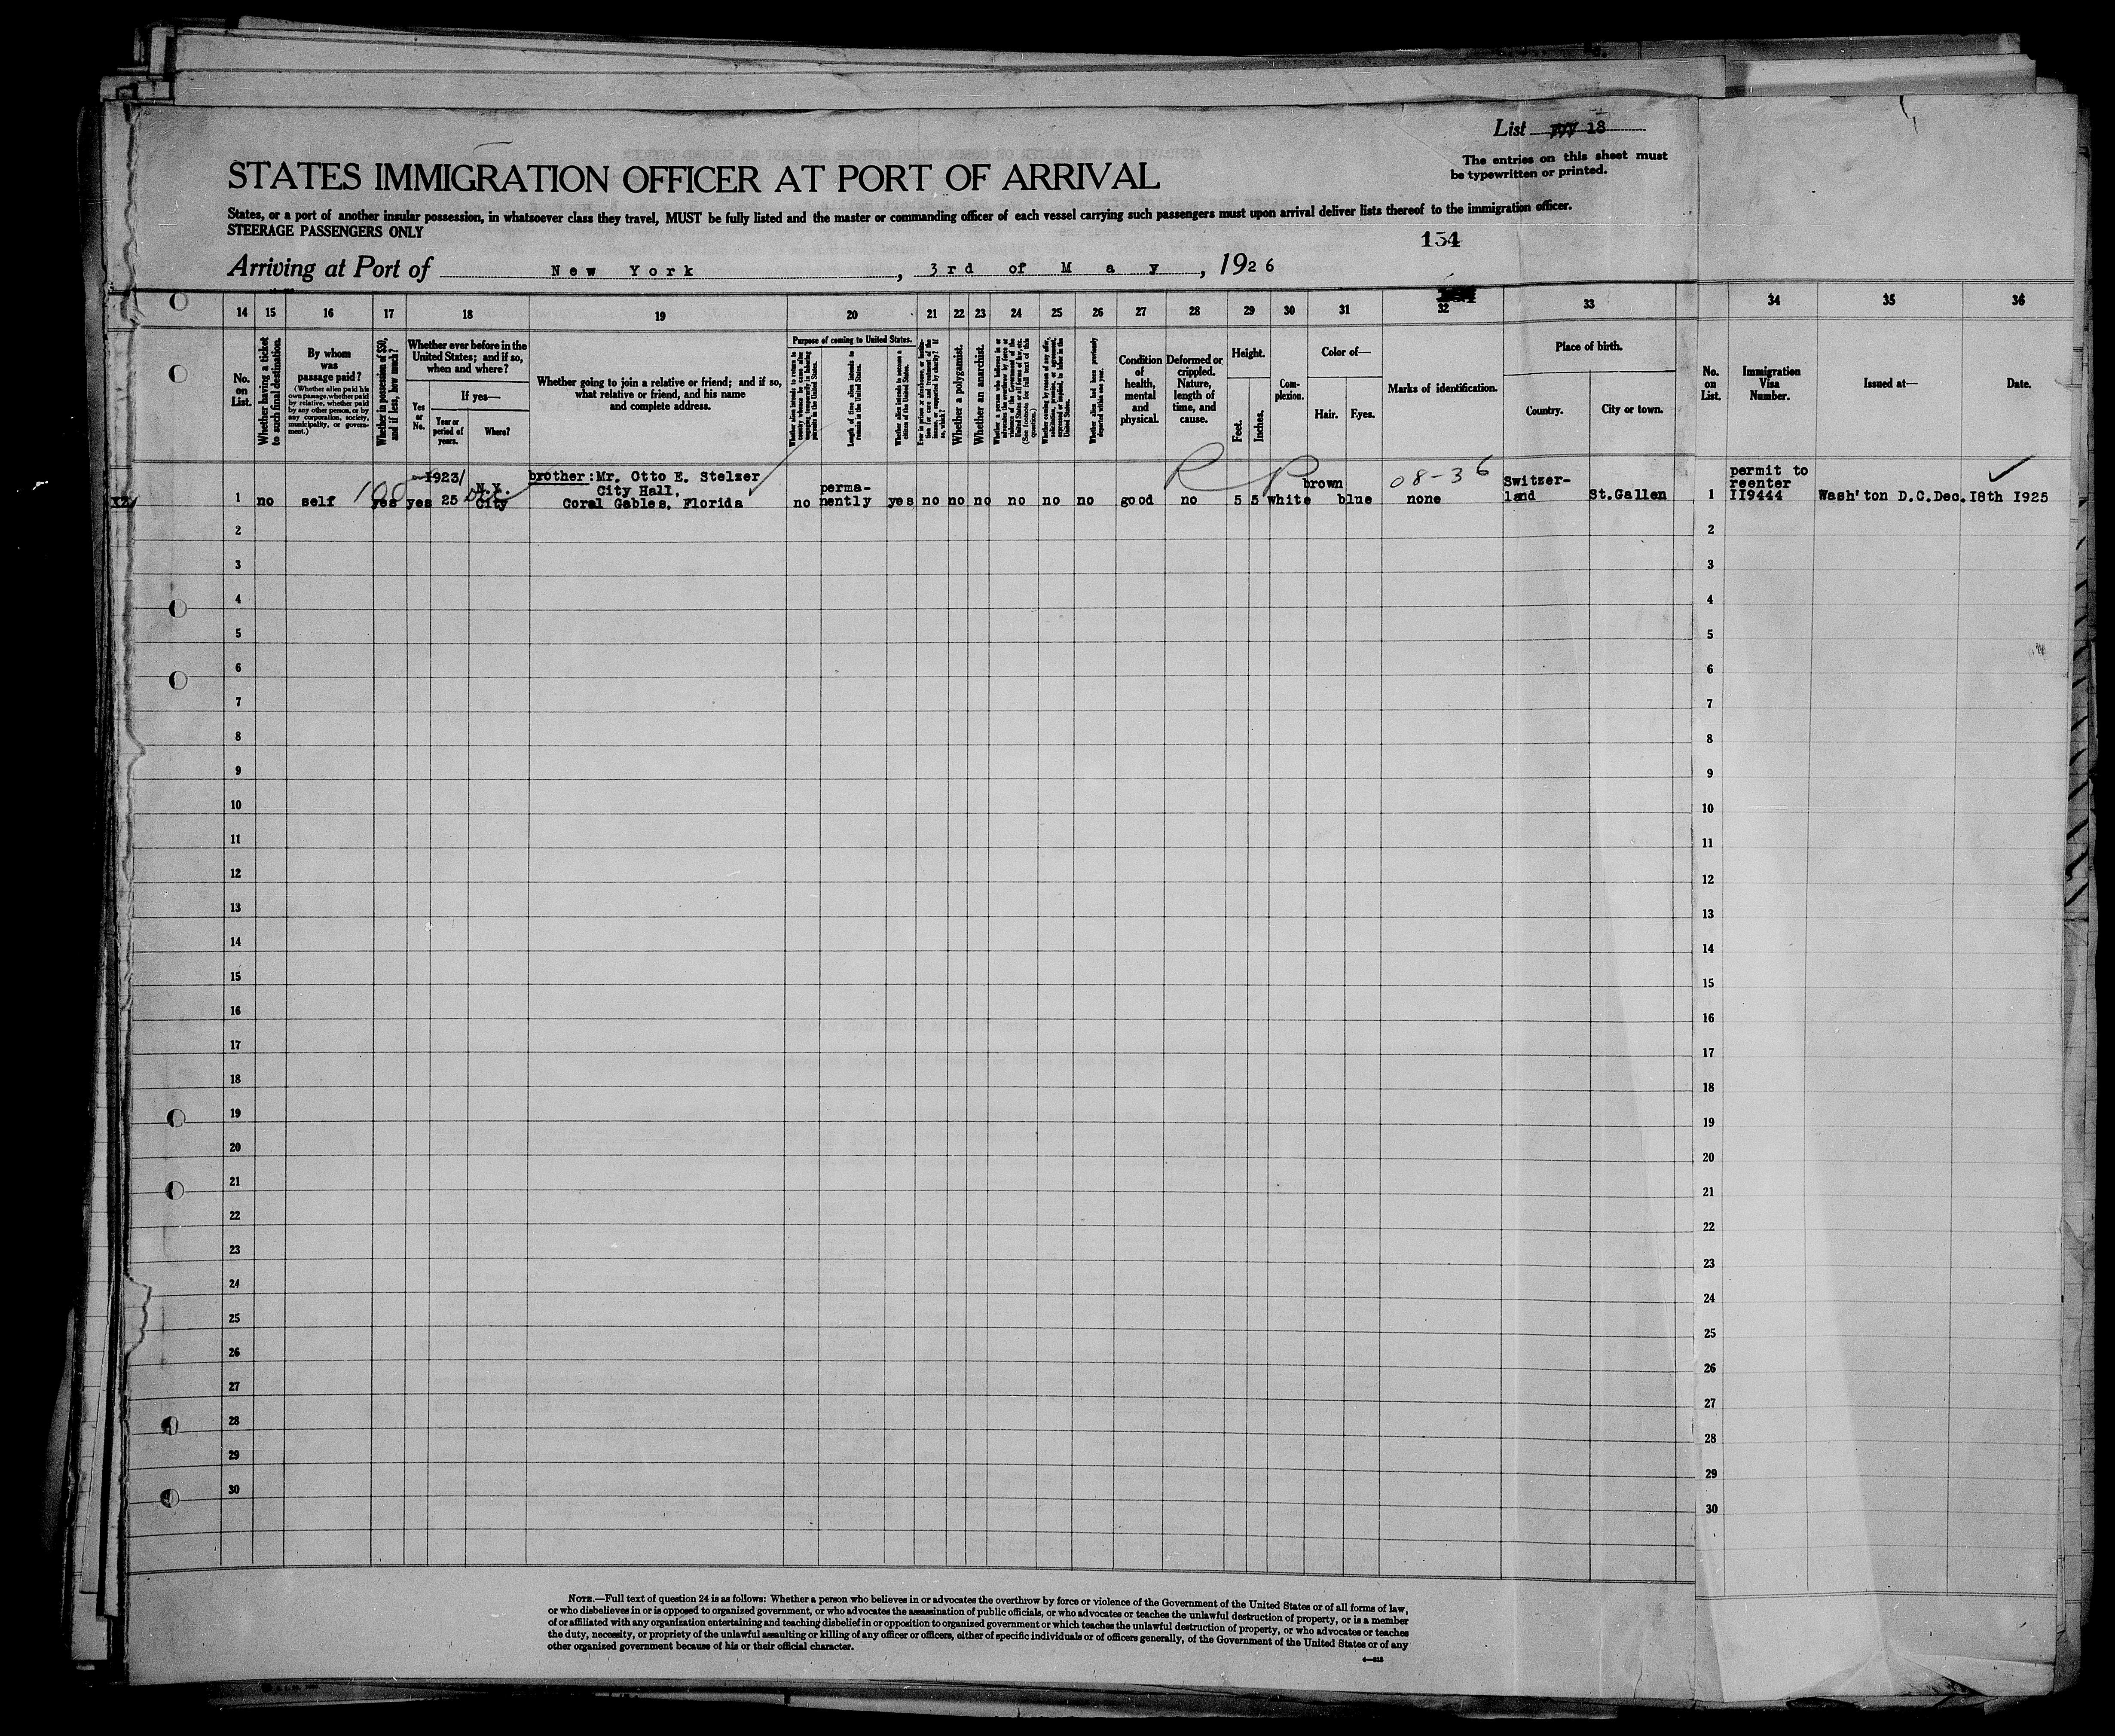 List 18
The entries on this sheet must
be typewritten or printed.
STATES IMMIGRATION OFFICER AT PORT OF ARRIVAL
States, or a port of another insular possession, in whatsoever class they travel, MUST be fully listed and the master or commanding officer of each vessel carrying such passengers must upon arrival deliver lists thereof to the immigration officer.
STEERAGE PASSENGERS ONLY
154
Arriving at Port of New York, 3rd of May, 1926
14 15 16 17 18 19 20 21 22 23 24 25 26 27 28 29 30 31 32 33 34 35 36
No. on List.
Whether having a ticket to such final destination.
By whom was passage paid?
(Whether alien paid his own passage, whether paid by relative, whether paid by any other person, or by any corporation, society, municipality, or government.)
Whether in possession of $50, and if less, how much?
Whether ever before in the United States; and if so, when and where?
Yes or No.
If yes—
Year or period of years.
Where?
Whether going to join a relative or friend; and if so, what relative or friend, and his name and complete address.
Purpose of coming to United States.
Whether alien intends to return to country whence he came after engaging temporarily in laboring pursuits in the United States.
Length of time alien intends to remain in the United States.
Whether alien intends to become a citizen of the United States.
Ever in prison or almshouse, or institution for care and treatment of the insane, or supported by charity? If so, which?
Whether a polygamist.
Whether an anarchist.
Whether a person who believes in or advocates the overthrow by force or violence of the Government of the United States or all forms of law, etc. (See footnote for full text of this question.)
Whether coming by reason of any offer, solicitation, promise, or agreement, expressed or implied, to labor in the United States.
Whether alien had been previously deported within one year.
Condition of health, mental and physical.
Deformed or crippled. Nature, length of time, and cause.
Height.
Feet.
Inches.
Complexion.
Color of—
Hair.
Eyes.
Marks of identification.
Place of birth.
Country.
City or town.
No. on List.
Immigration Visa Number.
Issued at—
Date.
1 no self 100 yes yes 1923/25 N.Y. City brother: Mr. Otto E. Stelzer City Hall, Coral Gables, Florida no permanently yes no no no no no no good no 5 5 white brown blue 08-36 none Switzer-land St.Gallen 1 permit to reenter II9444 Wash'ton D.C. Dec.I8th I925
2 2
3 3
4 4
5 5
6 6
7 7
8 8
9 9
10 10
11 11
12 12
13 13
14 14
15 15
16 16
17 17
18 18
19 19
20 20
21 21
22 22
23 23
24 24
25 25
26 26
27 27
28 28
29 29
30 30
NOTE.—Full text of question 24 is as follows: Whether a person who believes in or advocates the overthrow by force or violence of the Government of the United States or of all forms of law,
or who disbelieves in or is opposed to organized government, or who advocates the assassination of public officials, or who advocates or teaches the unlawful destruction of property, or is a member
of or affiliated with any organization entertaining and teaching disbelief in or opposition to organized government or which teaches the unlawful destruction of property, or who advocates or teaches
the duty, necessity, or propriety of the unlawful assaulting or killing of any officer or officers, either of specific individuals or of officers generally, of the Government of the United States or of any
other organized government because of his or their official character.